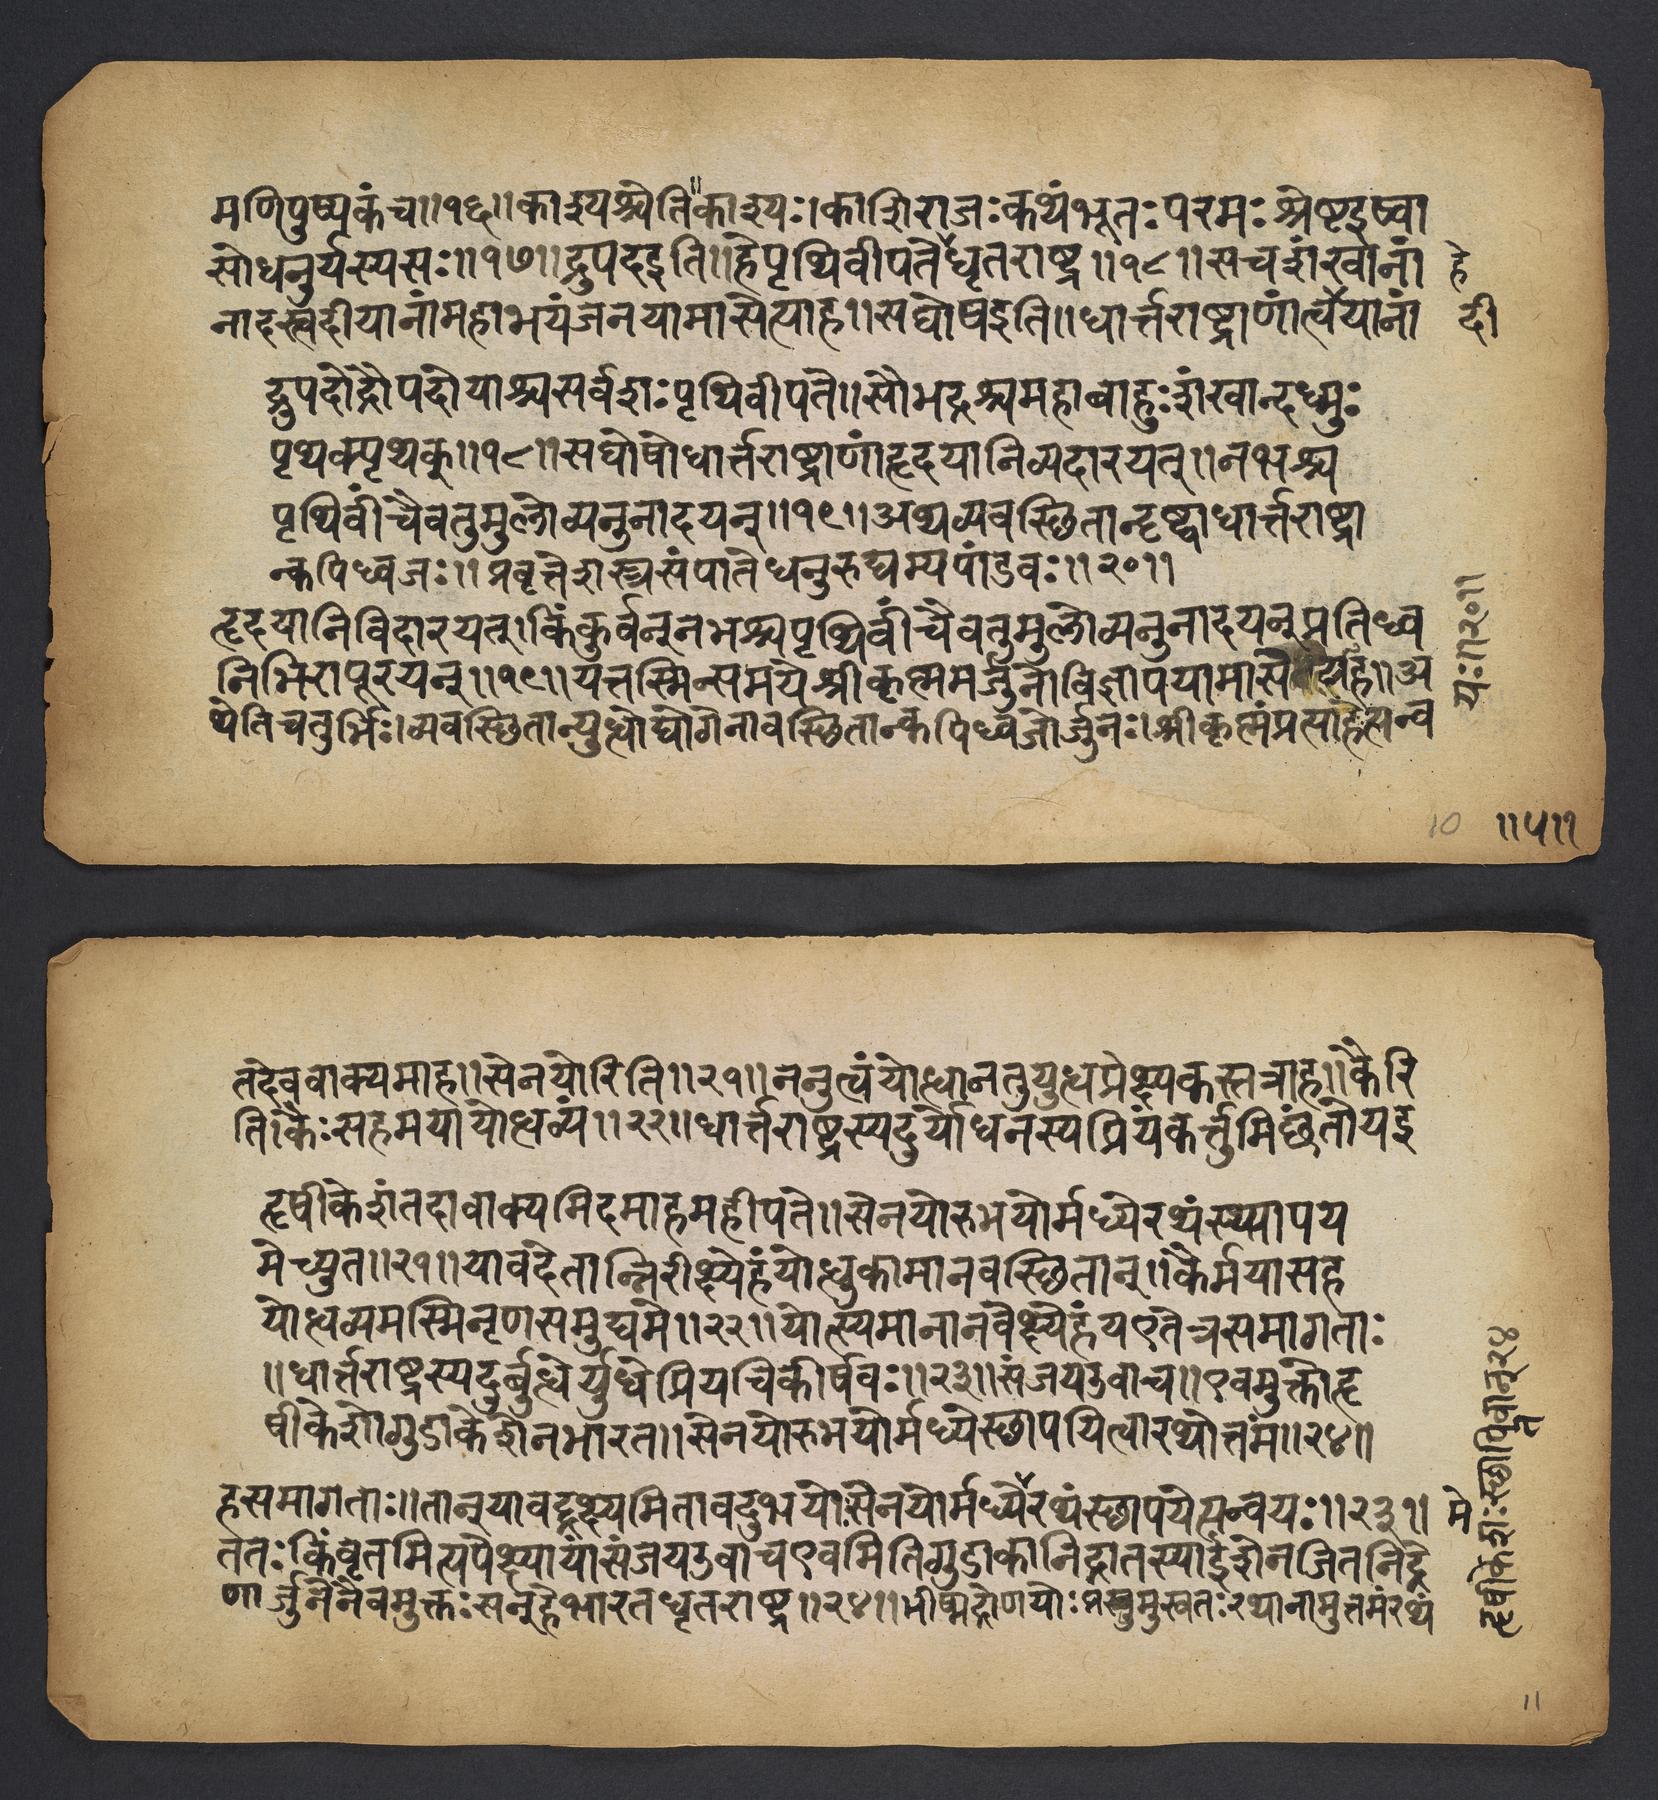 मणिपुष्पकंच॥१६॥काश्यश्चेति॥काश्यः।काशिराजःकथंभूतःपरमःश्रेष्टइष्वा
सोधनुर्यस्यसः॥१७॥द्रुपदइति॥हेपृथिवीपतेधृतराष्ट्र॥१८॥सचशंखानां
हे
नादस्त्वदीयानांमहाभयंजनयामासेत्याह॥सघोषइति॥धार्त्तराष्ट्राणांत्वयानां
दी
द्रुपदोद्रौपदेयाश्चसर्वशःपृथिवीपते॥सौभद्रश्चमहाबाहुःशंखान्दध्मुः
पृथक्पृथक्॥१८॥सघोषोधार्त्तराष्ट्राणांहृदयानिव्यदारयत्॥नभश्च
पृथिवींचैवतुमुलोव्यनुनादयन्॥१९॥अथव्यवस्छितान्दृष्ट्वाधार्त्तराष्ट्रा
न्कपिध्वजः॥प्रवृत्तेशस्त्रसंपातेधनुरुद्यम्यपांडवः॥२०॥
हृदयानिविदारयत्।किंकुर्वन्नभश्चपृथिवींचैवतुमुलोव्यनुनादयन्प्रतिध्व
निभिरापूरयन्॥१९॥यत्तस्मिन्समयेश्रीकृष्णमर्जुनोविज्ञापयामासतदाह॥अ
थेतिचतुर्भिः।व्यवस्छितान्युद्धोद्योगेनावस्छितान्कपिध्वजोर्जुनः।श्रीकृष्णंप्रत्याहेत्यन्व
यः॥२०॥
10
॥५॥
तदेववाक्यमाह॥सेनयोरिति॥२१॥ननुत्वंयोद्धानतुयुद्धप्रेक्ष्यकस्तत्राह॥कैरि
ति।कैःसहमयायोद्धव्यं॥२२॥धार्त्तराष्ट्रस्यदुर्योधनस्यप्रियंकर्त्तुमिछंतोयइ
हृषीकेशंतदावाक्यमिदमाहमहीपते॥सेनयोरुभयोर्मध्येरथंस्थापय
मेच्युत॥२१॥यावदेतान्निरीक्ष्येहंयोद्धुकामानवस्छितान्॥कैर्मयासह
योद्धव्यमस्मिन्रणसमुद्यमे॥२२॥योत्स्यमानानवेक्ष्येहंयएतेत्रसमागताः
॥धार्त्तराष्ट्रस्यदुर्बुद्धेर्युद्धेप्रियचिकीर्षवः॥२३॥संजयउवाच॥एवमुक्तोहृ
षीकेशोगुडाकेशेनभारत॥सेनयोरुभयोर्मध्येस्छापयित्वारथोत्तमं॥२४॥
हसमागताः॥तान्यावद्द्रक्ष्यमितावदुभयोःसेनयोर्मध्येरथंस्छापयेत्यन्वयः॥२३॥
मे
ततःकिंवृतमित्यपेक्ष्यायांसंजयउवाचएवमितिगुडाकानिद्रातस्याईशेनजितनिद्रे
णार्जुनेनैवमुक्तःसन्हेभारतधृतराष्ट्र॥२४॥भीष्मद्रोणयोःप्रमुखतःरथानामुत्तमंरथं
हृषीकेशःस्छापितवान्२४
11